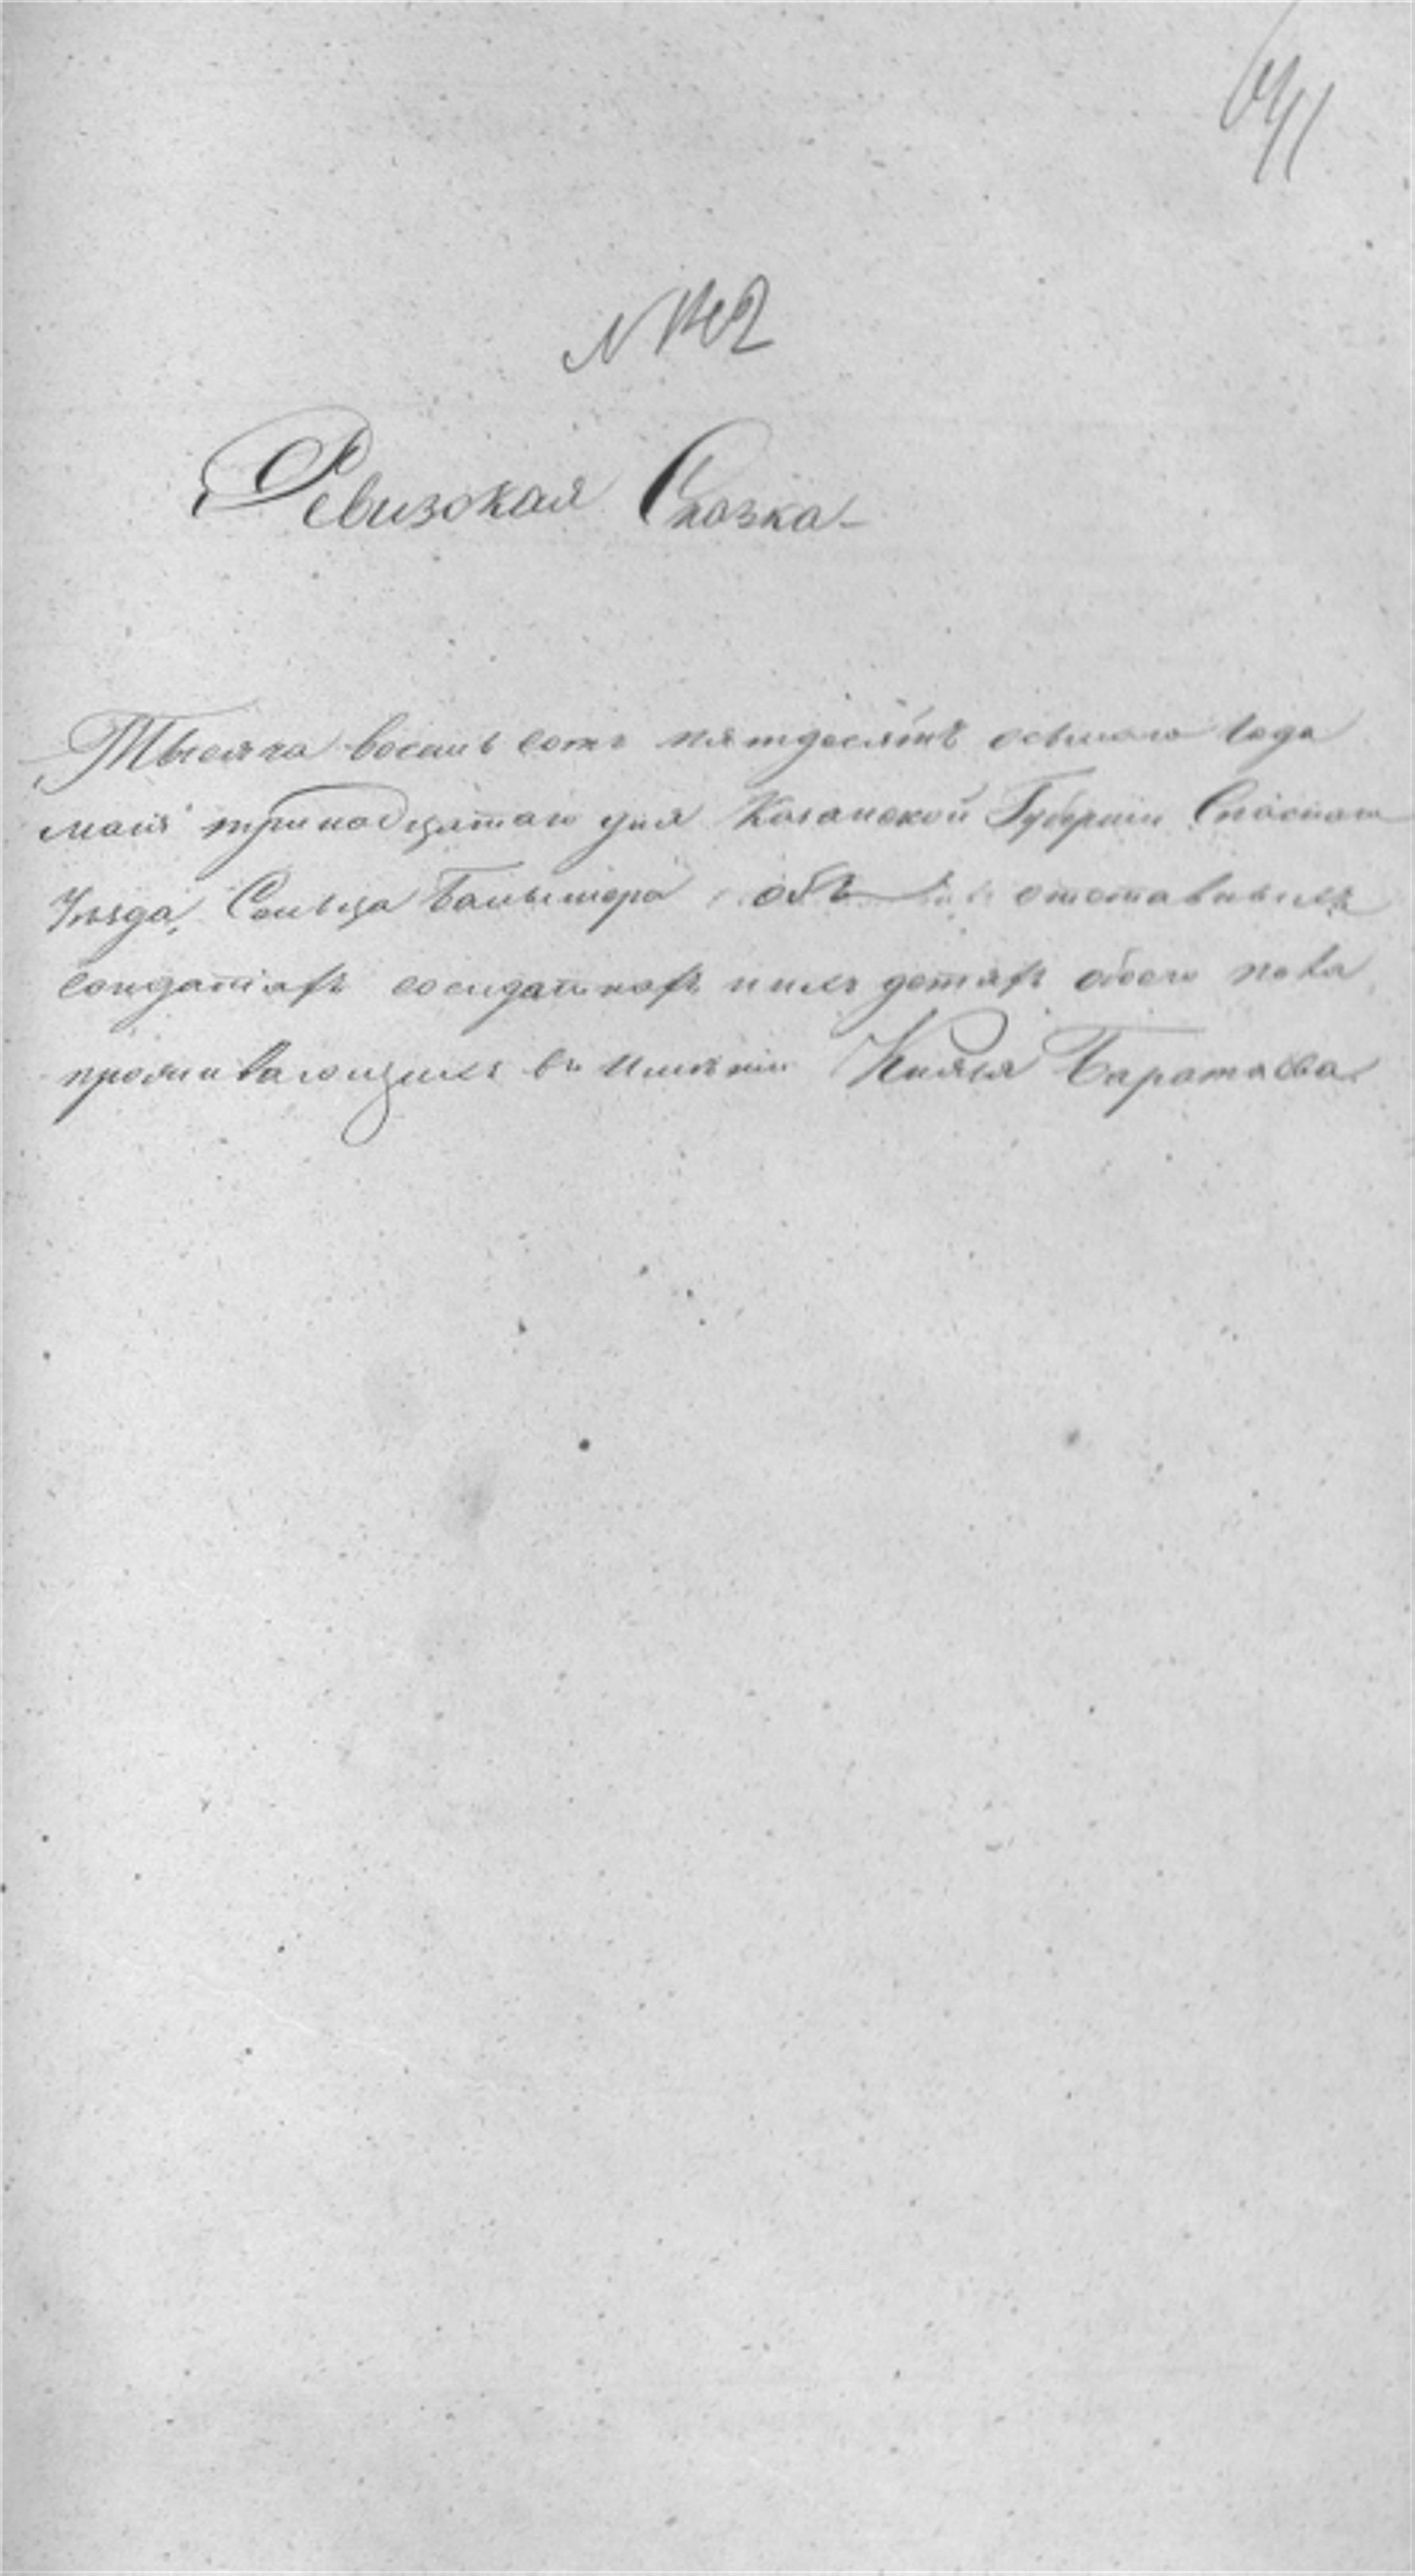 641
Ревизская Сказка
Тысяча восемь сотъ пятдесятъ осьмаго года
мая тринадцатаго дня Казанской Губернiи Спаскаго
Уѣзда, Сельца объ отставныхъ
солдатахъ солдаткахъ и ихъ детяхъ обоего пола
проживающихъ въ Имѣнiи Князя Баратаева